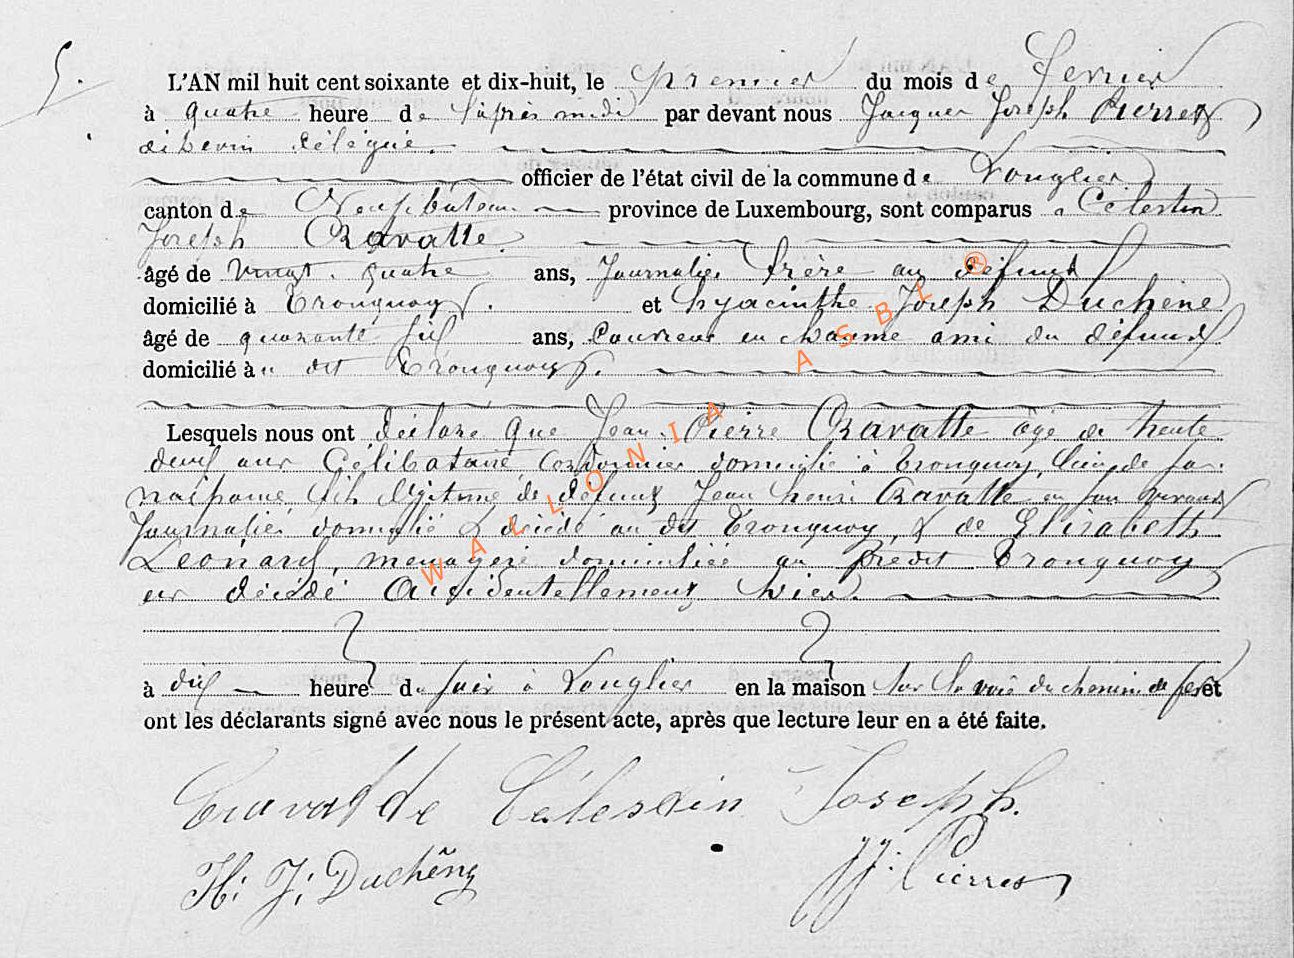 5.
L'AN mil huit cent soixante et dix-huit, le premier du mois de fevrier
à quatre heure de l'après midi par devant nous Jacques Joseph Pierret
échevin délégué.
officier de l'état civil de la commune de Longlier
canton de Neufchâteau province de Luxembourg, sont comparus Célestin
Joseph Cravatte.
âgé de vingt quatre ans, Journalier frère au défunt
domicilié à Tronquoy. et hyacinthe Joseph Duchène
âgé de quarante six ans, Couvreur en chaume ami du défunt
domicilié à dit Tronquoy.
Lesquels nous ont déclaré que Jean Pierre Cravatte âgé de trente
deux ans Célibataire Cordonnier domicilié à Tronquoy, lieu de sa
naissance, fils légitime de défunt Jean henri Cravatte en son vivant
Journalier domicilié & décédé au dit Tronquoy, & de Elisabeth
Leonard, menagère domiciliée au prédit Tronquoy
est décédé Accidentellement hier.
à dix heure du soir à Longlier en la maison sur la voie du chemin de fer et
ont les déclarants signé avec nous le présent acte, après que lecture leur en a été faite.
Cravatte Célestin Joseph.
H. J. Duchêne
JJ. Pierret
WALLONIA ASBL ®